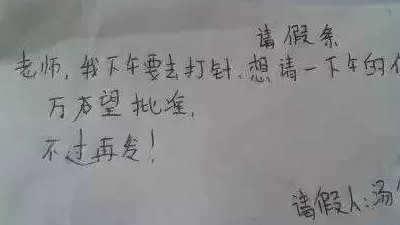 请假条
老师，我下午要去打针，想请一下午的
万方望批准，
不过再发！
请假人：汤